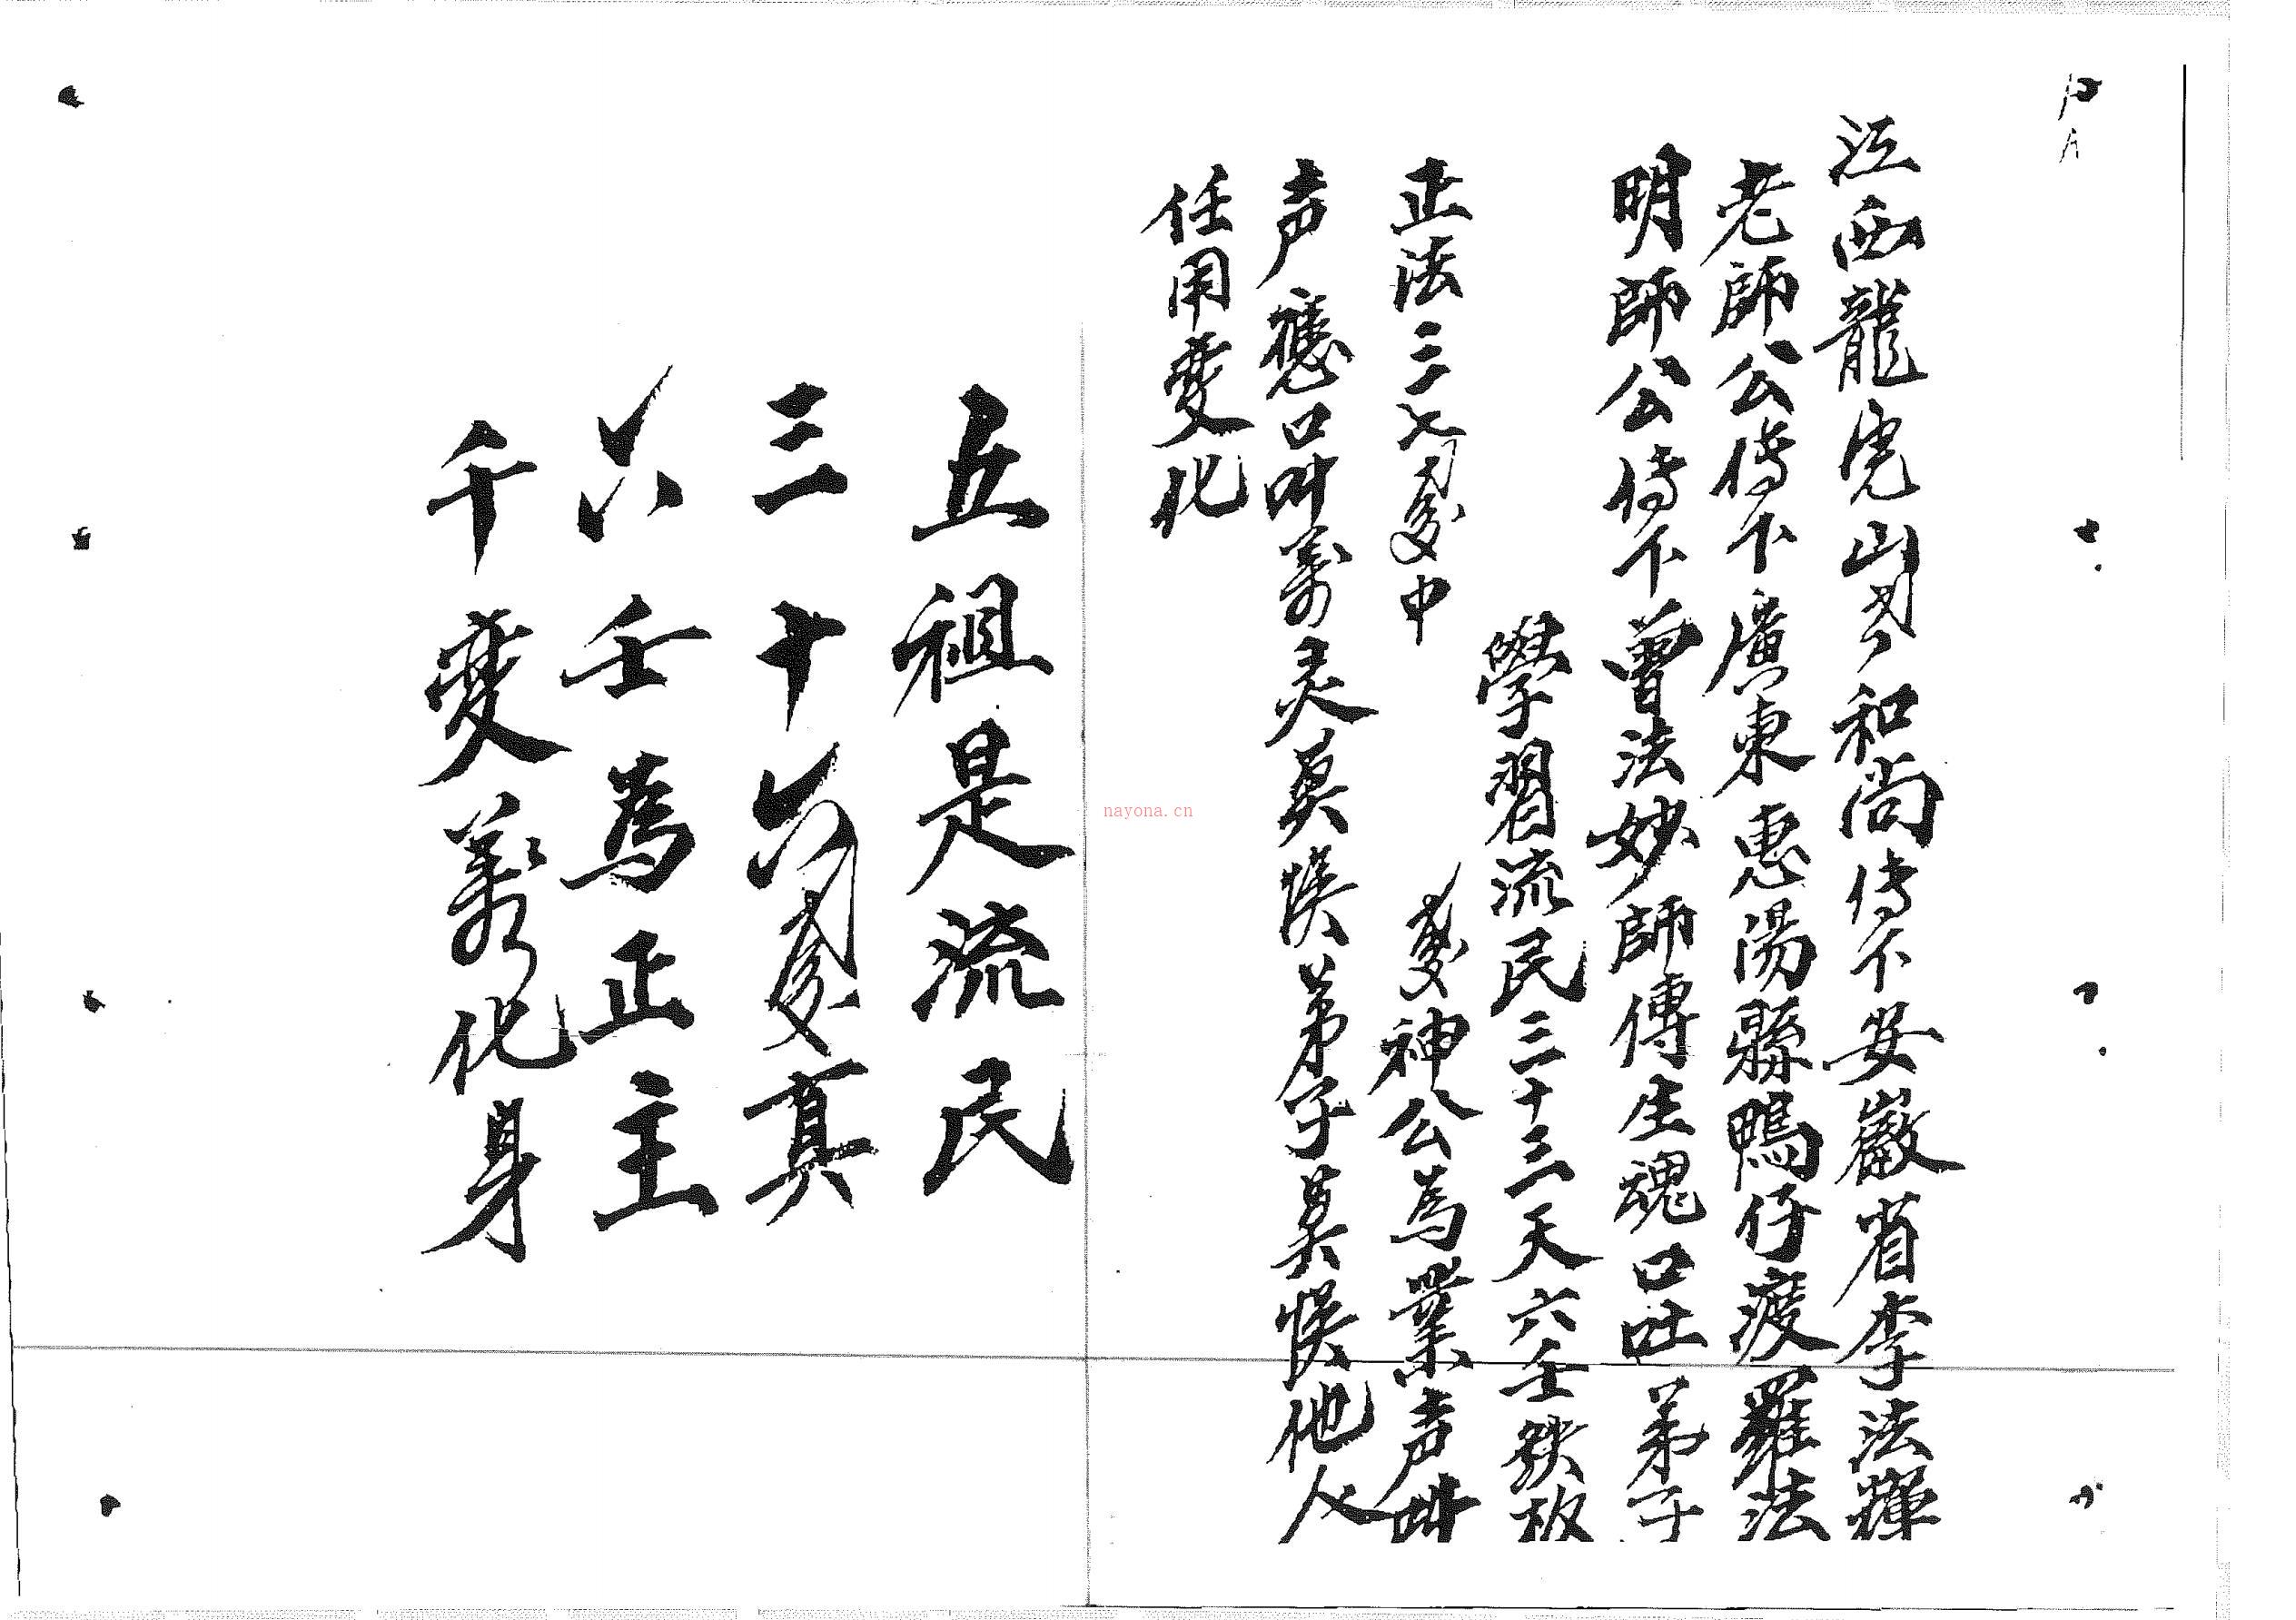 江西龍虎山 和尚传下安徽省李法輝
老師公傳下廣東惠陽縣鴨仔渡羅法
明師公传下曾法妙師傳生魂口吐弟子
學習流民三十三天六壬鉄板
正法三七 中 神公為業声叫
声應口叫萬灵莫悞弟子莫悞他人
任用变化
五祖是流民
三十六 真
六壬為正主
千变萬化身
nayona.cn